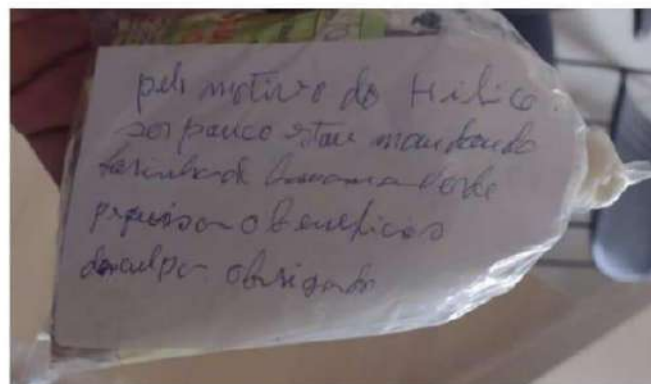 pelo motivo do Hibico.
ser pouco estou mandando
farinha de banana verde
pesquisar o benefícios
desculpa. obrigado